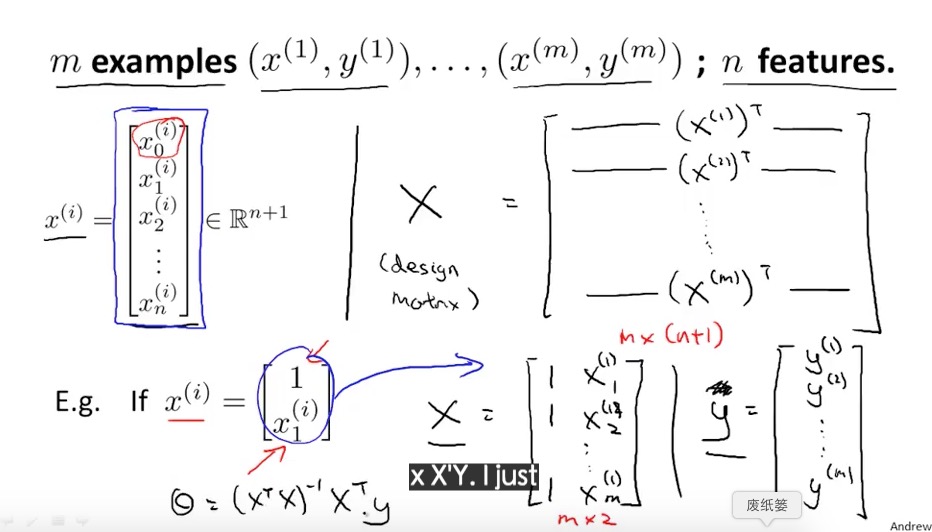 m examples (x^(1), y^(1)), ..., (x^(m), y^(m)) ; n features.
x^(i) = [x_0^(i) x_1^(i) x_2^(i) ⋮ x_n^(i)] ∈ ℝ^(n+1)
X = [— (x^(1))^T — — (x^(2))^T — ⋮ — (x^(m))^T —]
(design
matrix)
m x (n+1)
E.g. If x^(i) = [1 x_1^(i)]
X = [1 x_1^(1) 1 x_2^(1) ⋮ 1 x_m^(1)]
m x 2
y = [y^(1) y^(2) ⋮ y^(m)]
Θ = (X^T X)^-1 X^T y
x X'Y. I just
废纸篓
Andrew